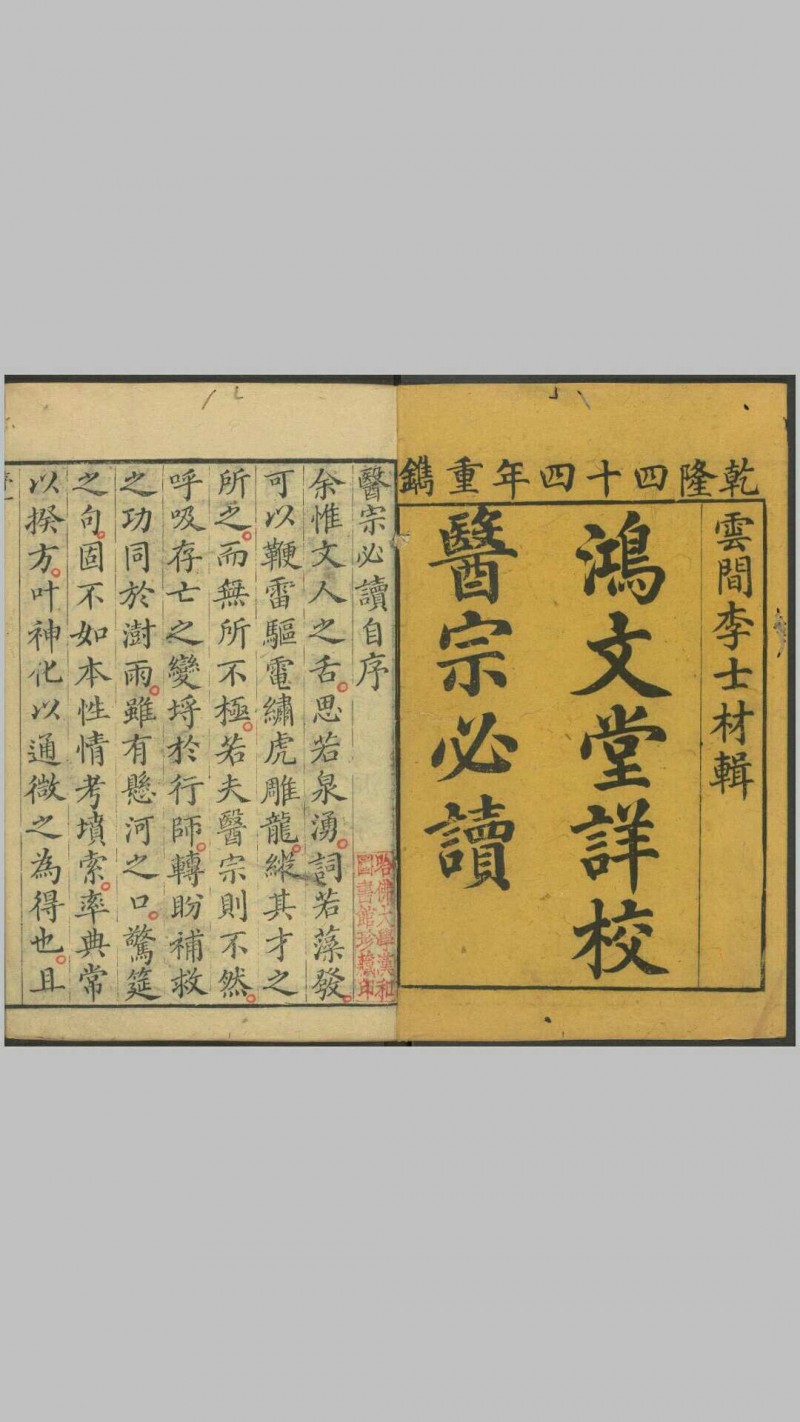 乾隆四十四年重鐫
雲間李士材輯
鴻文堂詳校
醫宗必讀
醫宗必讀自序
余惟文人之舌。思若泉湧。詞若藻發。
可以鞭雷驅電繡虎雕龍。縱其才之
所之。而無所不極。若夫醫宗則不然。
呼吸存亡之變埒於行師。轉盼補救
之功同於澍雨。雖有懸河之口。驚筵
之句。固不如本性情考墳索。率典常
以揆方。叶神化以通微之為得也。且
哈佛大學漢和
圖書館珍藏印